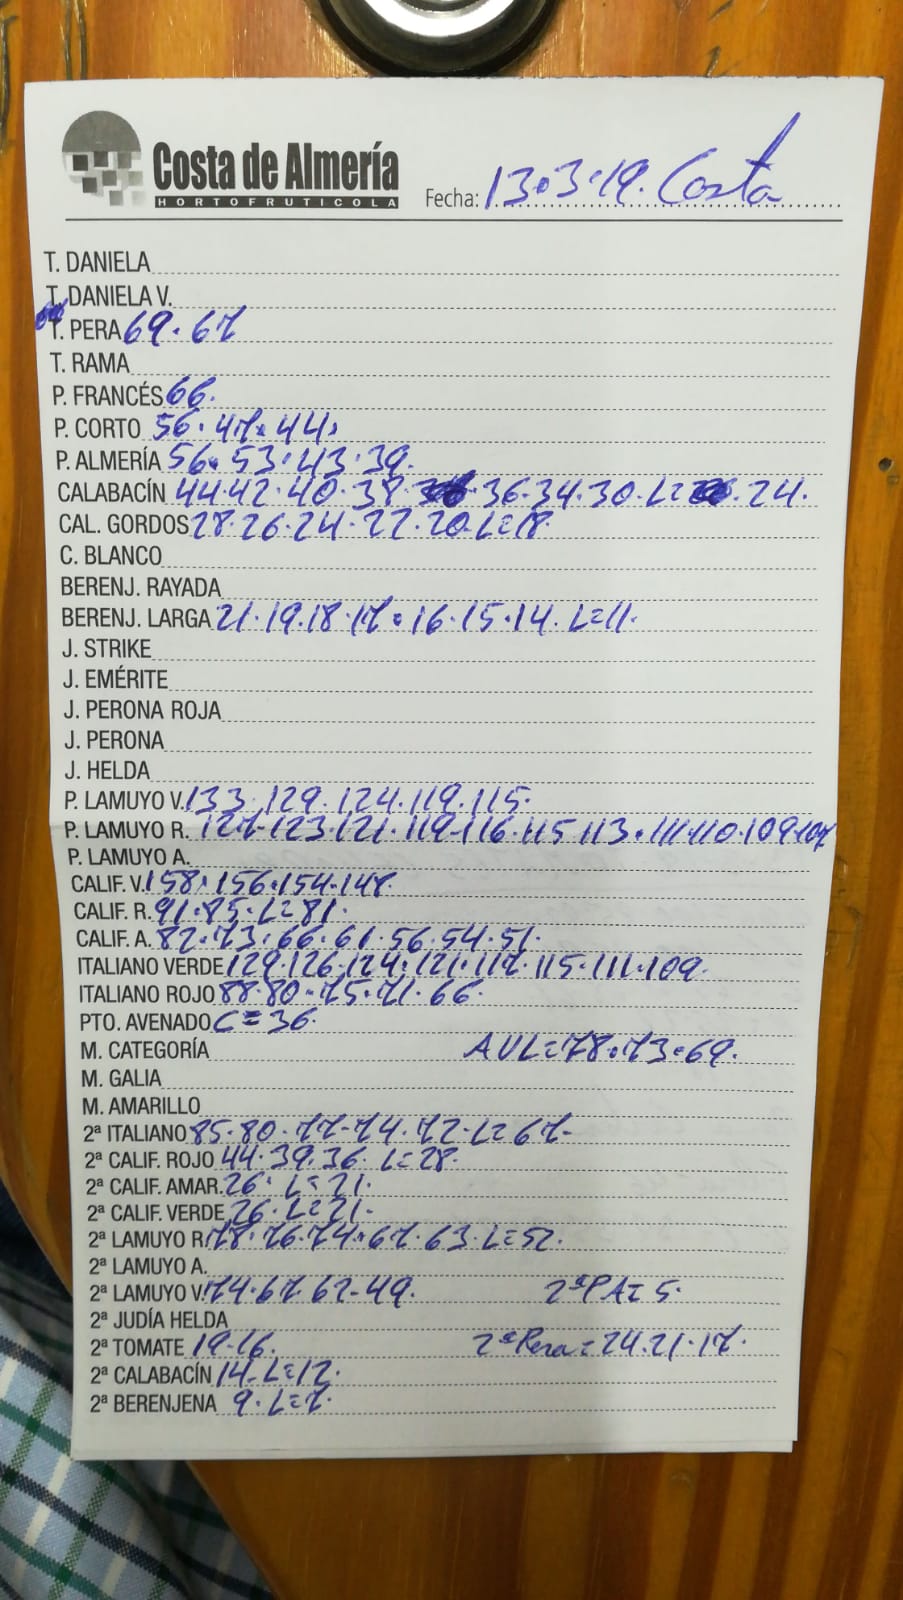 Costa de Almería
HORTOFRUTICOLA
Fecha: 13.3.19. Costa
T. DANIELA
T. DANIELA V.
T. PERA 69.67
T. RAMA
P. FRANCÉS 66.
P. CORTO 56.47.44.
P. ALMERÍA 56.53.43.39.
CALABACÍN 44.42.40.38. .36.34.30.L= .24.
CAL. GORDOS 28.26.24.22.20.L=18
C. BLANCO
BERENJ. RAYADA
BERENJ. LARGA 21.19.18.17.16.15.14.L=11.
J. STRIKE
J. EMÉRITE
J. PERONA ROJA
J. PERONA
J. HELDA
P. LAMUYO V. 133.129.124.119.115.
P. LAMUYO R. 127-123.121.119-116.115 113.111.110.109.107
P. LAMUYO A.
CALIF. V. 158.156.154.148.
CALIF. R. 91.85.L=81.
CALIF. A. 82.73.66.61.56.54.51.
ITALIANO VERDE 129.126.124.121.117.115.111.109.
ITALIANO ROJO 88.80.75.71.66.
PTO. AVENADO C=36.
M. CATEGORÍA AUL=78.73.69.
M. GALIA
M. AMARILLO
2ª ITALIANO 85.80.77-74.72-L=67-
2ª CALIF. ROJO 44.39.36.L=28.
2ª CALIF. AMAR. 26.L=21.
2ª CALIF. VERDE 26.L=21-
2ª LAMUYO R. 78.76.74.67.63.L=52.
2ª LAMUYO A.
2ª LAMUYO V. 74.67.62-49. 2ªPA= 5.
2ª JUDÍA HELDA
2ª TOMATE 19-16. 2ªPera=24.21.17.
2ª CALABACÍN 14.L=12.
2ª BERENJENA 9.L=7.